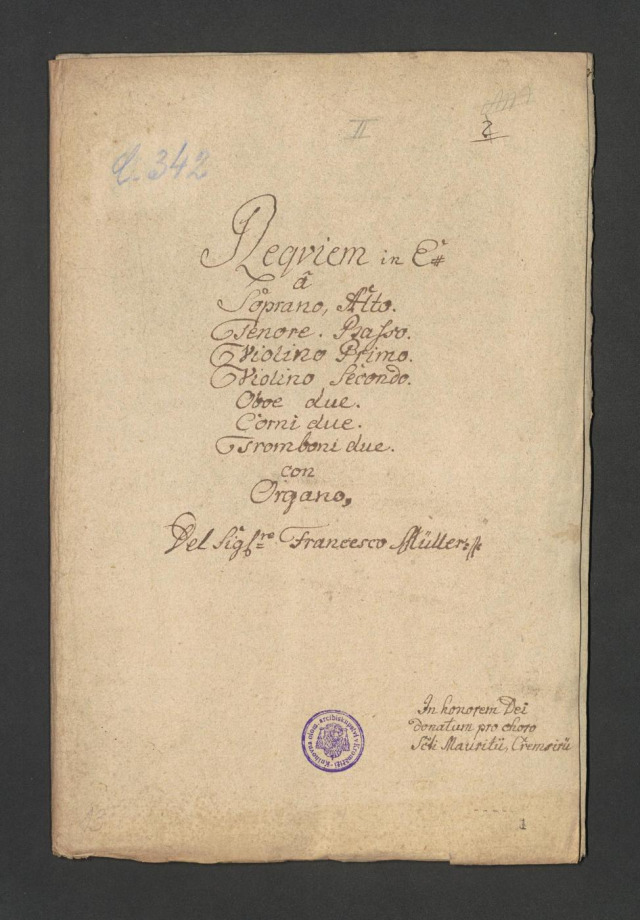 II
2
C. 342
Requiem in E#
â
Soprano, Alto.
Tenore. Basso.
Violino Primo.
Violino Secondo.
Oboe due.
Corni due.
Tromboni due.
con
Organo,
Del Sig:re Francesco Müller
In honorem Dei
donatum pro choro
Scti Mauritii, Cremsirii
Knihovna olom. arcibiskupství v Kroměříži
1